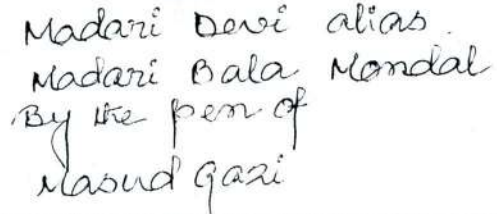 Madari Devi alias.
Madari Bala Mondal
By the pen of
Masud Gazi